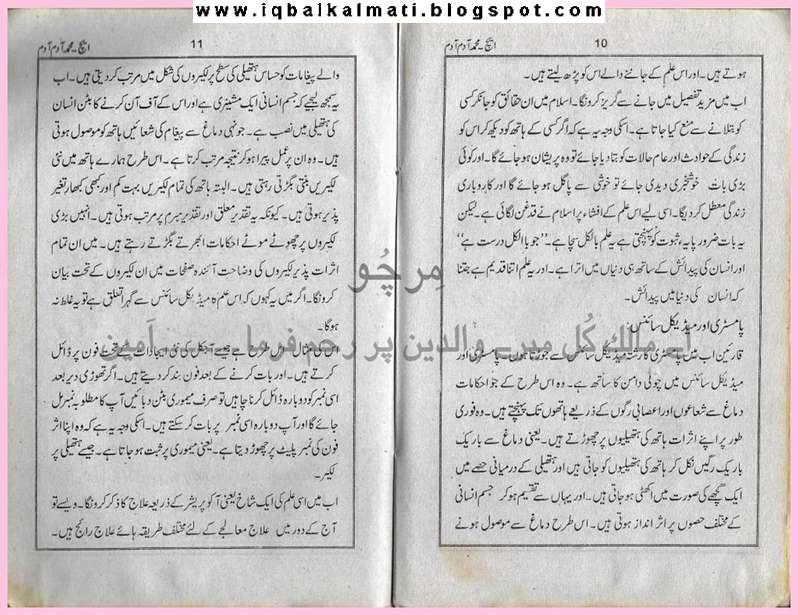 www.iqbalkalmati.blogspot.com
10
ایچ۔ محمد آدم آدم
ہوتے ہیں۔ اور اس علم کے جاننے والے اس کو پڑھ لیتے ہیں۔
اب میں مزید تفصیل میں جانے سے گریز کرونگا۔ اسلام میں ان حقائق کو جانکر کسی
کو بتلانے سے منع کیا جاتا ہے۔ اسکی وجہ یہ ہے کہ اگر کسی کے ہاتھ کو دیکھ کر اس کو
زندگی کے حوادث اور عام حالات کو بتا دیا جائے تو وہ پریشان ہو جائے گا۔ اور کوئی
بڑی بات خوشخبری دیدی جائے تو خوشی سے پاگل ہو جائے گا اور کاروباری
زندگی معطل کر دیگا۔ اسی لیے اس علم کے افشاء پر اسلام نے قدغن لگائی ہے۔ لیکن
یہ بات ضرور پایہء ثبوت کو پہنچتی ہے یہ علم بالکل سچا ہے۔ ”جو بالکل درست ہے“
اور انسان کی پیدائش کے ساتھ ہی دنیاں میں اترا ہے۔ اور یہ علم اتنا قدیم ہے جتنا
کہ انسان کی دنیا میں پیدائش۔
پامسٹری اور میڈیکل سائنس۔
قارئین اب میں پامسٹری کا رشتہ میڈیکل سائنس سے جوڑتا ہوں۔ پامسٹری اور
میڈیکل سائنس میں چولی دامن کا ساتھ ہے۔ وہ اس طرح کے جو احکامات
دماغ سے شعاعوں اور اعصابی رگوں کے ذریعے ہاتھوں تک پہنچتے ہیں۔ وہ فوری
طور پر اپنے اثرات ہاتھ کی ہتھیلیوں پر چھوڑتے ہیں۔ یعنی دماغ سے باریک
باریک رگیں نکل کر ہاتھ کی ہتھیلیوں کو جاتی ہیں اور ہتھیلی کے درمیانی حصے میں
ایک گچھے کی صورت میں اکھٹی ہو جاتی ہیں۔ اور یہاں سے تقسیم ہو کر جسم انسانی
کے مختلف حصوں پر اثر انداز ہوتی ہیں۔ اس طرح دماغ سے موصول ہونے
11
ایچ۔ محمد آدم آدم
والے پیغامات کو حساس ہتھیلی کی سطح پر لکیروں کی شکل میں مرتب کر دیتی ہیں۔ اب
یہ سمجھ لیجیے کہ جسم انسانی ایک مشینری ہے اور اس کے آف آن کرنے کا بٹن انسان
کی ہتھیلی میں نصب ہے۔ جونہی دماغ سے پیغام کی شعائیں ہاتھ کو موصول ہوتی
ہیں۔ وہ ان پر عمل پیرا ہو کر نتیجہ مرتب کرتا ہے۔ اس طرح ہمارے ہاتھ میں نئی
لکیریں بنتی بگڑتی رہتی ہیں۔ البتہ ہاتھ کی تمام لکیریں بہت کم اور کبھی کبھار تغیر
پذیر ہوتی ہیں۔ کیونکہ یہ تقدیر معلق اور تقدیر مبرم پر مرتب ہوتی ہیں۔ انہیں بڑی
لکیروں پر چھوٹے موٹے احکامات ابھرتے بگڑتے رہتے ہیں۔ میں ان تمام
اثرات پذیر لکیروں کی وضاحت آئندہ صفحات میں ان لکیروں کے تحت بیان
کرونگا۔ اگر میں یہ کہوں کہ اس علم کا میڈیکل سائنس سے گہرا تعلق ہے تو یہ غلط نہ
ہوگا۔
اس کی مثال اس طرح ہے جیسے آجکل کی نئی ایجادات کے تحت فون پر ڈائل
کرتے ہیں۔ اور بات کرنے کے بعد فون بند کر دیتے ہیں۔ اگر تھوڑی دیر بعد
اسی نمبر کو دوبارہ ڈائل کرنا چاہیں تو صرف میموری بٹن دبائیں آپ کا مطلوبہ نمبر مل
جائے گا اور آپ دوبارہ اسی نمبر پر بات کر سکتے ہیں۔ اسکی وجہ یہ ہے کہ وہ اپنا اثر
فون کی نمبر پلیٹ پر چھوڑ دیتا ہے۔ یعنی میموری پر ثبت ہو جاتا ہے۔ جیسے ہتھیلی پر
لکیر۔
اب میں اسی علم کی ایک شاخ یعنی آکوپریشر کے ذریعہ علاج کا ذکر کرونگا۔ ویسے تو
آج کے دور میں علاج معالجے کے لئے مختلف طریقہ ہائے علاج رائج ہیں۔
مِرچُو
اے مالک کُل میرے والدین پر رحم فرما۔ آمین